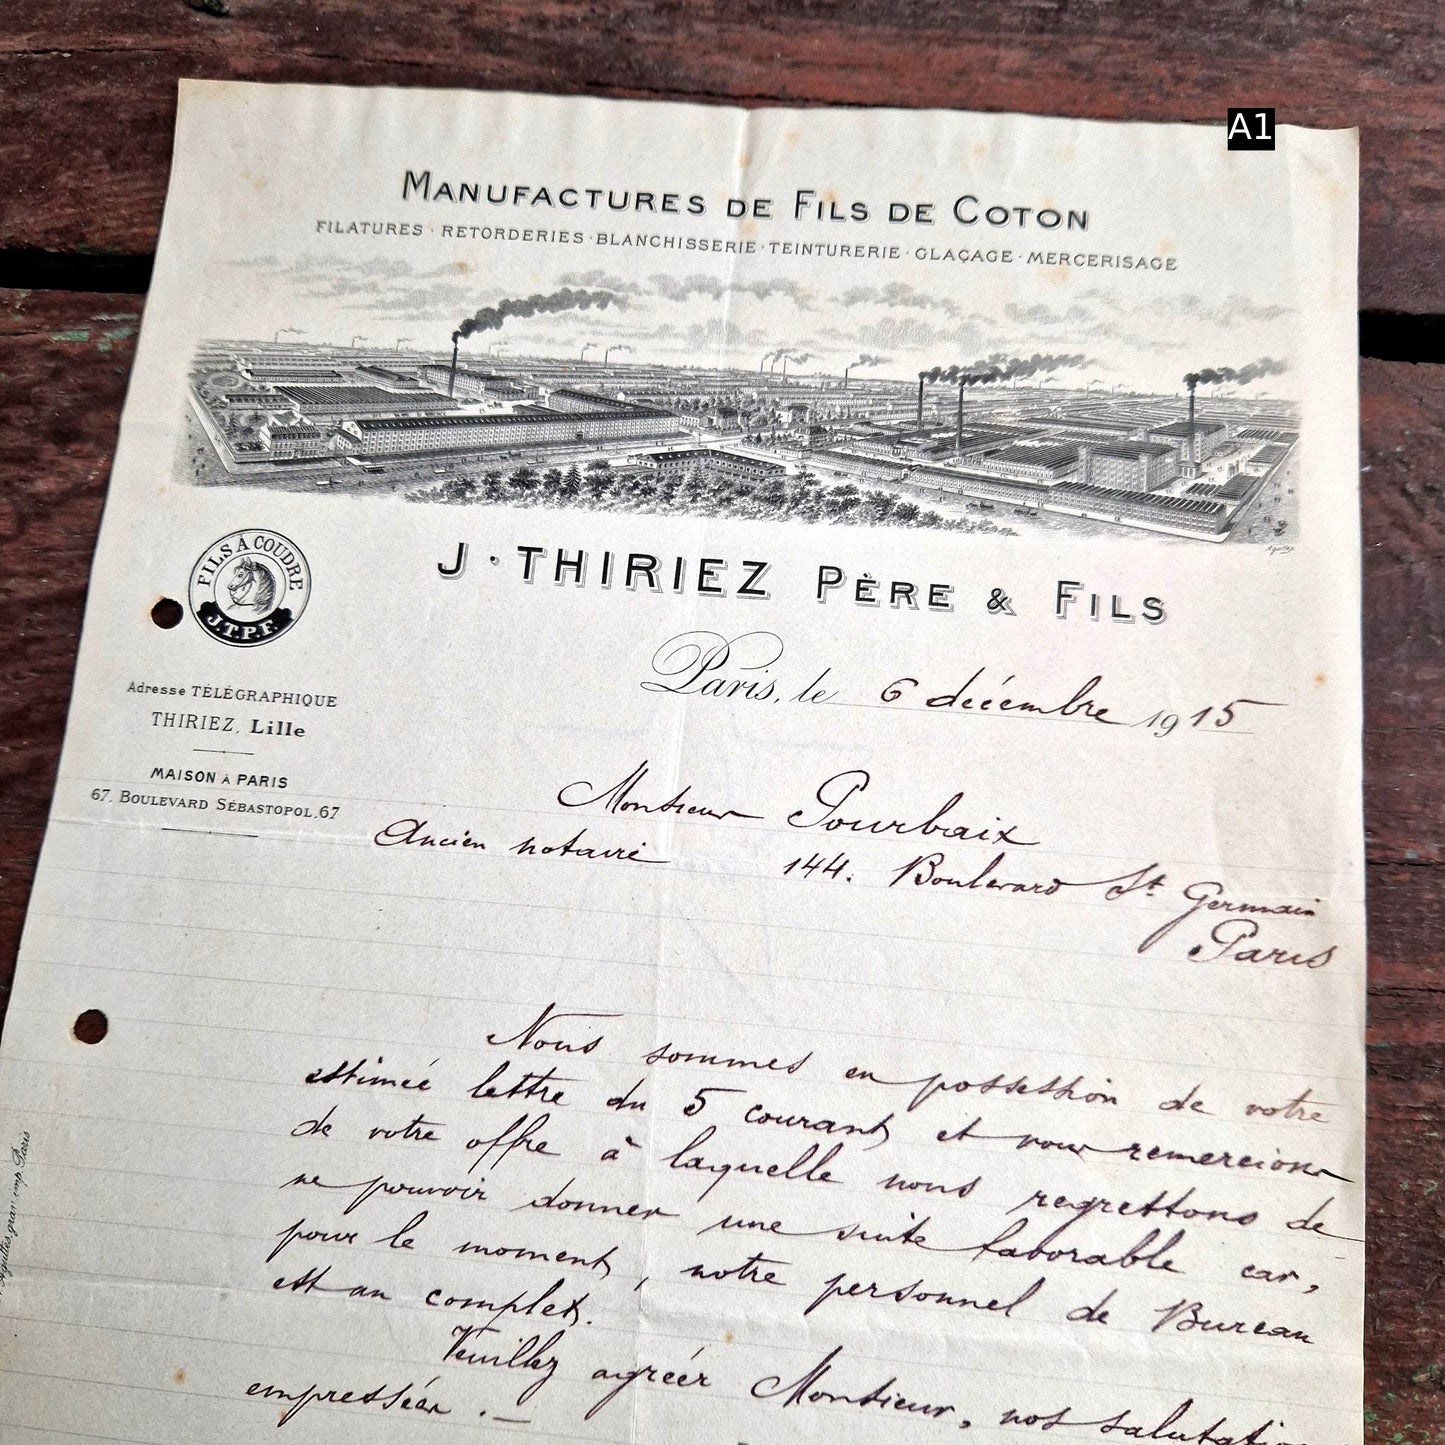 A1
MANUFACTURES DE FILS DE COTON
FILATURES · RETORDERIES · BLANCHISSERIE · TEINTURERIE · GLAÇAGE · MERCERISAGE
J · THIRIEZ PÈRE & FILS
FILS À COUDRE
J.T.P.F.
Paris, le 6 décembre 1915
Adresse TÉLÉGRAPHIQUE
THIRIEZ, Lille
MAISON À PARIS
67, BOULEVARD SÉBASTOPOL, 67
Monsieur Pourbaix
Ancien notaire 144. Boulevard St Germain
Paris
Nous sommes en possession de votre
estimée lettre du 5 courant, et vous remercions
de votre offre à laquelle nous regrettons de
ne pouvoir donner une suite favorable car,
pour le moment, notre personnel de Bureau
est au complet.
Veuillez agréer Monsieur, nos salutatio
empressées. —
grav. imp. Paris